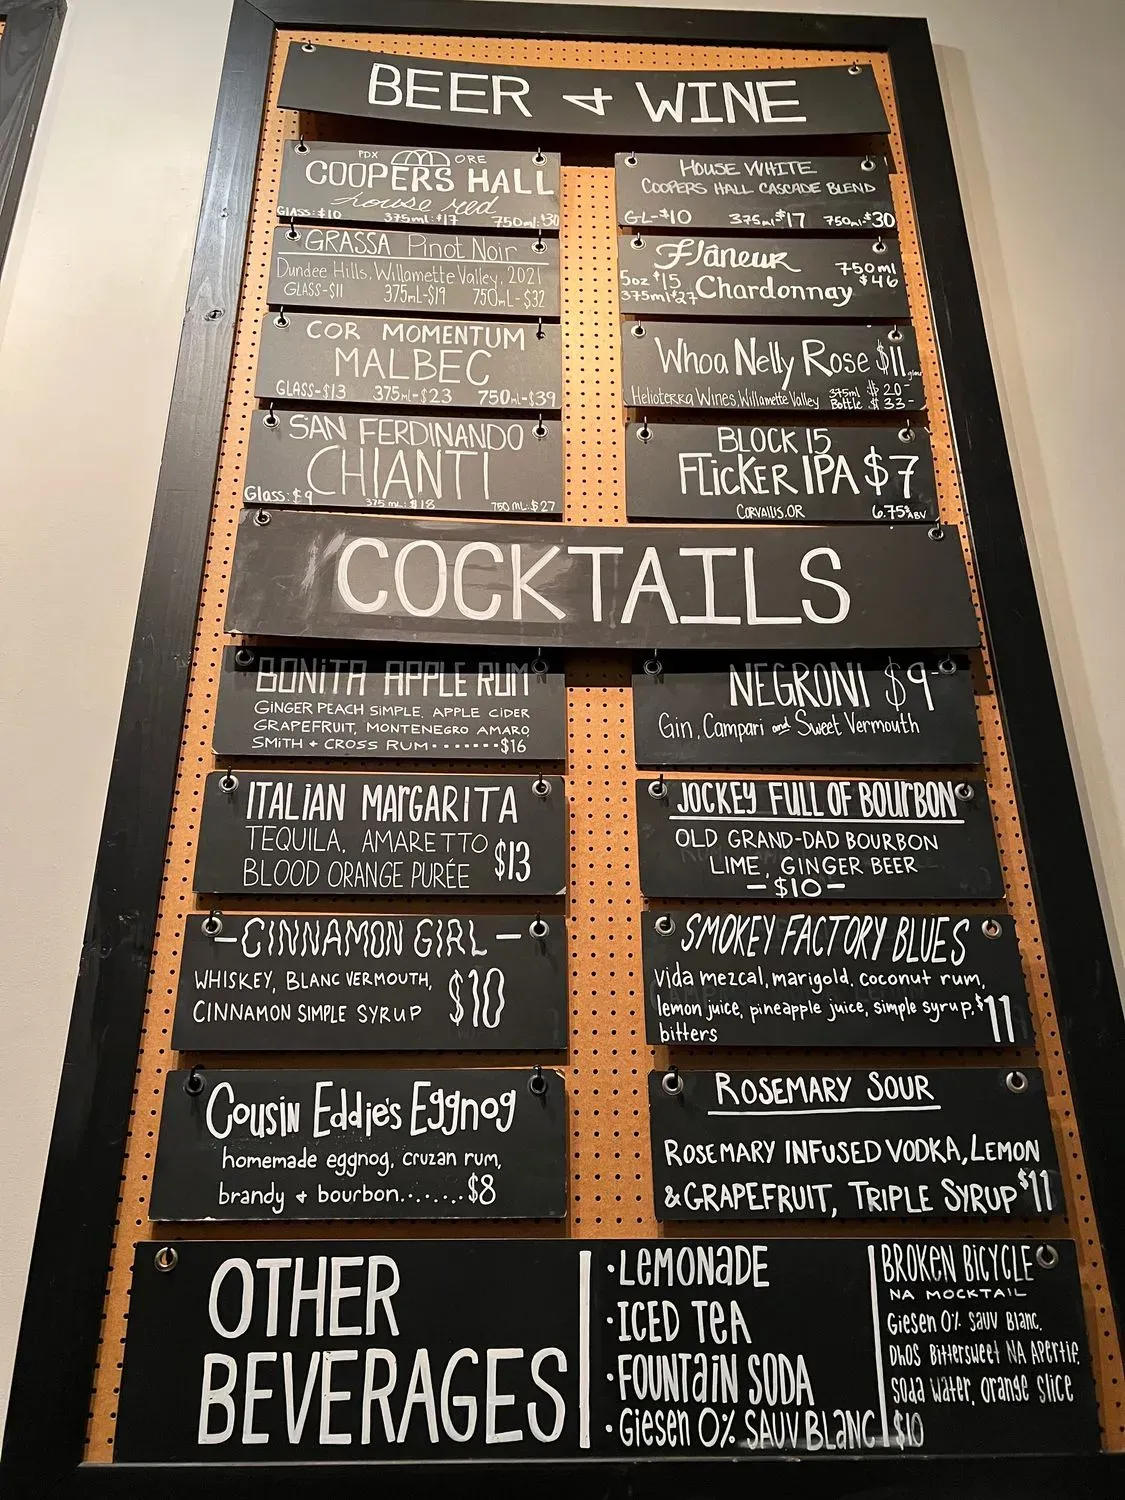 BEER & WINE
PDX ORE
COOPERS HALL
house red
GLASS:$10 375ml:$17 750ml:$30
GRASSA Pinot Noir
Dundee Hills, Willamette Valley, 2021
GLASS-$11 375mL-$19 750mL-$32
COR MOMENTUM
MALBEC
GLASS-$13 375mL-$23 750mL-$39
SAN FERDINANDO
CHIANTI
Glass: $9 375 mL: $18 750 mL: $27
HOUSE WHITE
COOPERS HALL CASCADE BLEND
GL-$10 375ml-$17 750ml-$30
Flâneur
Chardonnay
5oz $15
375ml $27
750ml
$46
Whoa Nelly Rose $11
Helioterra Wines, Willamette Valley 375ml $20-
Bottle $33-
BLOCK 15
FLiCKER IPA $7
CORVALLIS, OR 6.75% ABV
COCKTAILS
BONITA APPLE RUM
GINGER PEACH SIMPLE, APPLE CIDER
GRAPEFRUIT, MONTENEGRO AMARO
SMITH + CROSS RUM.......$16
ITALIAN MARGARITA
TEQUILA, AMARETTO
BLOOD ORANGE PURÉE $13
-CINNAMON GIRL-
WHISKEY, BLANC VERMOUTH,
CINNAMON SIMPLE SYRUP $10
Cousin Eddie's Eggnog
homemade eggnog, cruzan rum,
brandy & bourbon........$8
NEGRONI $9-
Gin, Campari and Sweet Vermouth
JOCKEY FULL OF BOURBON
OLD GRAND-DAD BOURBON
LIME, GINGER BEER
-$10-
SMOKEY FACTORY BLUES
Vida mezcal, marigold, coconut rum,
lemon juice, pineapple juice, simple syrup,
bitters $11
ROSEMARY SOUR
ROSEMARY INFUSED VODKA, LEMON
& GRAPEFRUIT, TRIPLE SYRUP $11
OTHER
BEVERAGES
·LEMONADE
·ICED TEA
·FOUNTAIN SODA
·Giesen 0% SAUV BLANC
BROKEN BICYCLE
NA MOCKTAIL
Giesen 0% Sauv Blanc,
DHOS Bittersweet NA Apertif,
Soda Water, Orange Slice
$10